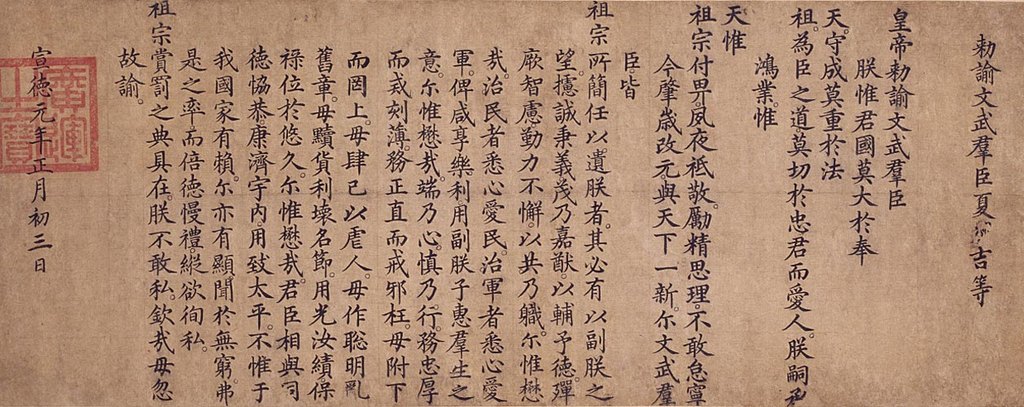 勅諭文武羣臣夏原吉等
皇帝勅諭文武羣臣
朕惟君國莫大於奉
天。守成莫重於法
祖。為臣之道莫切於忠君而愛人。朕嗣承
鴻業。惟
天惟
祖宗付畀。夙夜祗敬。勵精思理。不敢怠寧
今肇歲改元與天下一新。尔文武羣
臣皆
祖宗所簡任以遺朕者。其必有以副朕之
望。攄誠秉義茂乃嘉猷。以輔予德殫
厥智慮勤力不懈。以共乃職。尔惟懋
哉。治民者悉心愛民。治軍者悉心愛
軍。俾咸享樂利用副朕子惠羣生之
意。尔惟懋哉。端乃心。慎乃行。務忠厚
而戒刻薄。務正直而戒邪枉。毋附下
而罔上。毋肆己以虐人。毋作聡明亂
舊章。毋黷貨利壊名節。用光汝績保
祿位於悠久。尔惟懋哉。君臣相與同
德恊恭康濟宇內。用致太平。不惟于
我國家有賴。尔亦有顯聞於無窮。弗
是之率而倍德慢禮。縱欲徇私。
祖宗賞罰之典具在。朕不敢私。欽哉毋忽
故諭。
宣德元年正月初三日
廣運
之寶